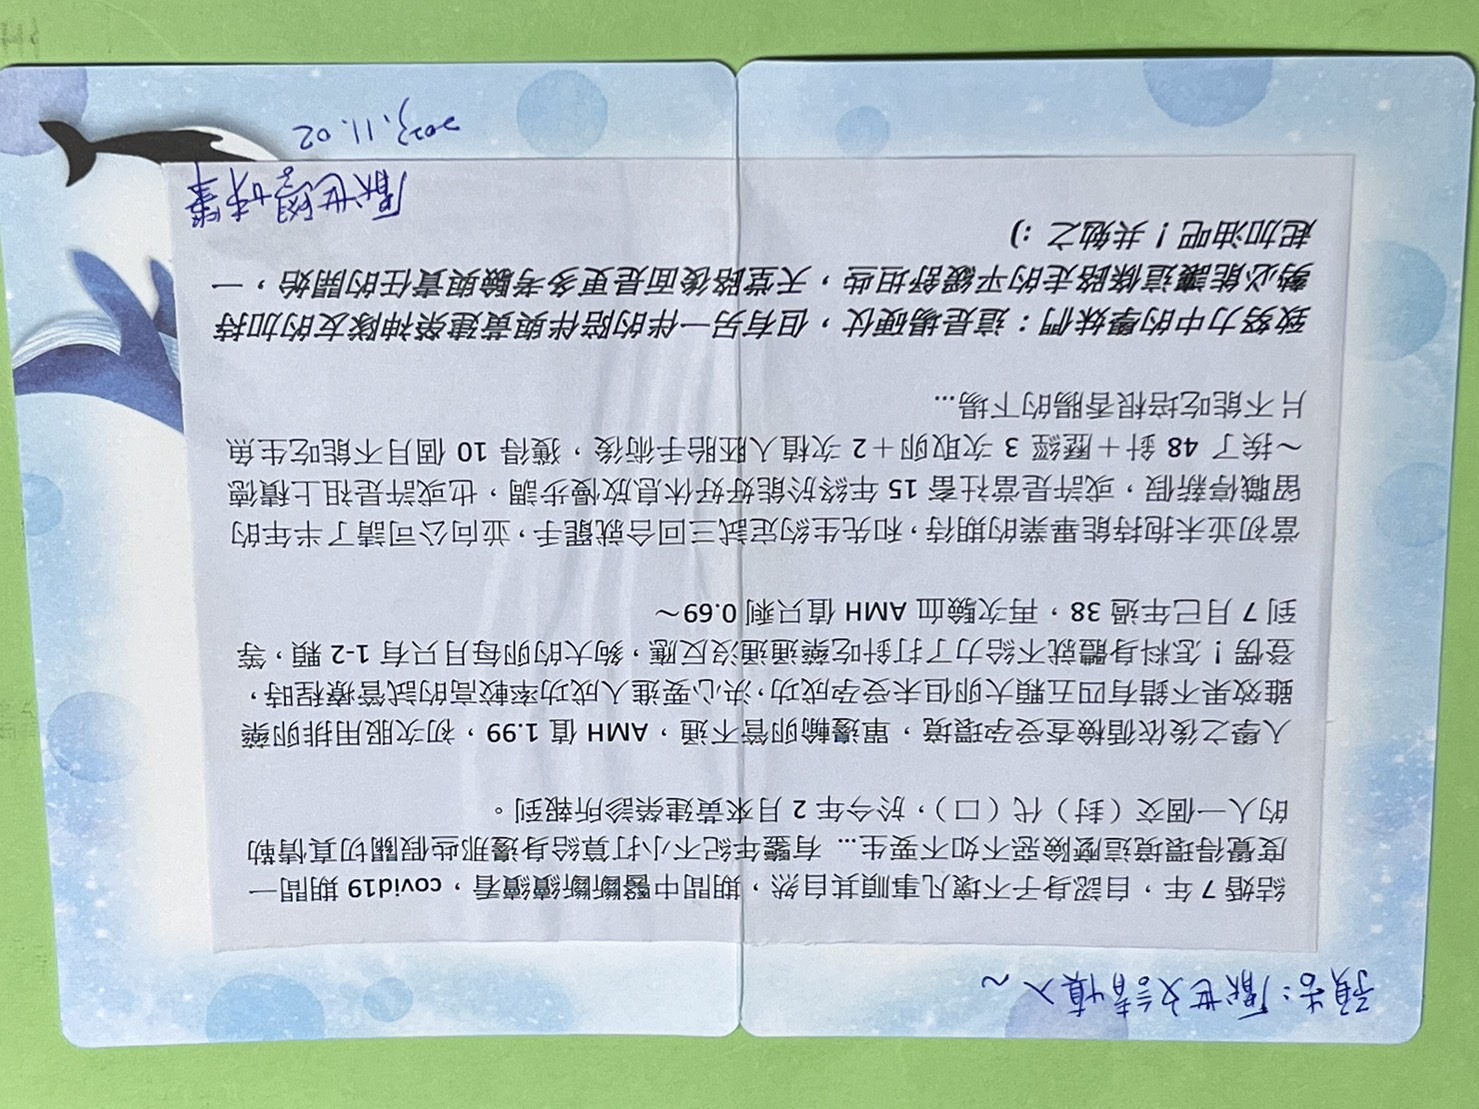 預告：厭世文請慎入～
結婚 7 年，自認身子不壞凡事順其自然，期間中醫斷斷續續看，covid19 期間一
度覺得環境這麼險惡不如不要生... 有鑒年紀不小打算給身邊那些假關切真情勒
的人一個交（封）代（口），於今年 2 月來黃建榮診所報到。
入學之後依循檢查受孕環境，單邊輸卵管不通，AMH 值 1.99，初次服用排卵藥
雖效果不錯有四五顆大卵但未受孕成功，決心要進入成功率較高的試管療程時，
登愣！怎料身體就不給力了打針吃藥通通沒反應，夠大的卵每月只有 1-2 顆，等
到 7 月已年過 38，再次驗血 AMH 值只剩 0.69～
當初並未抱持能畢業的期待，和先生約定試三回合就罷手，並向公司請了半年的
留職停薪假，或許是當社畜 15 年終於能好好休息放慢步調，也或許是祖上積德
～挨了 48 針＋歷經 3 次取卵＋2 次植入胚胎手術後，獲得 10 個月不能吃生魚
片不能吃培根香腸的下場...
致努力中的學妹們：這是場硬仗，但有另一伴的陪伴與黃建榮神隊友的加持
勢必能讓這條路走的平緩舒坦些，天堂路後面是更多考驗與責任的開始，一
起加油吧！共勉之 :)
厭世學姊筆
2023.11.02